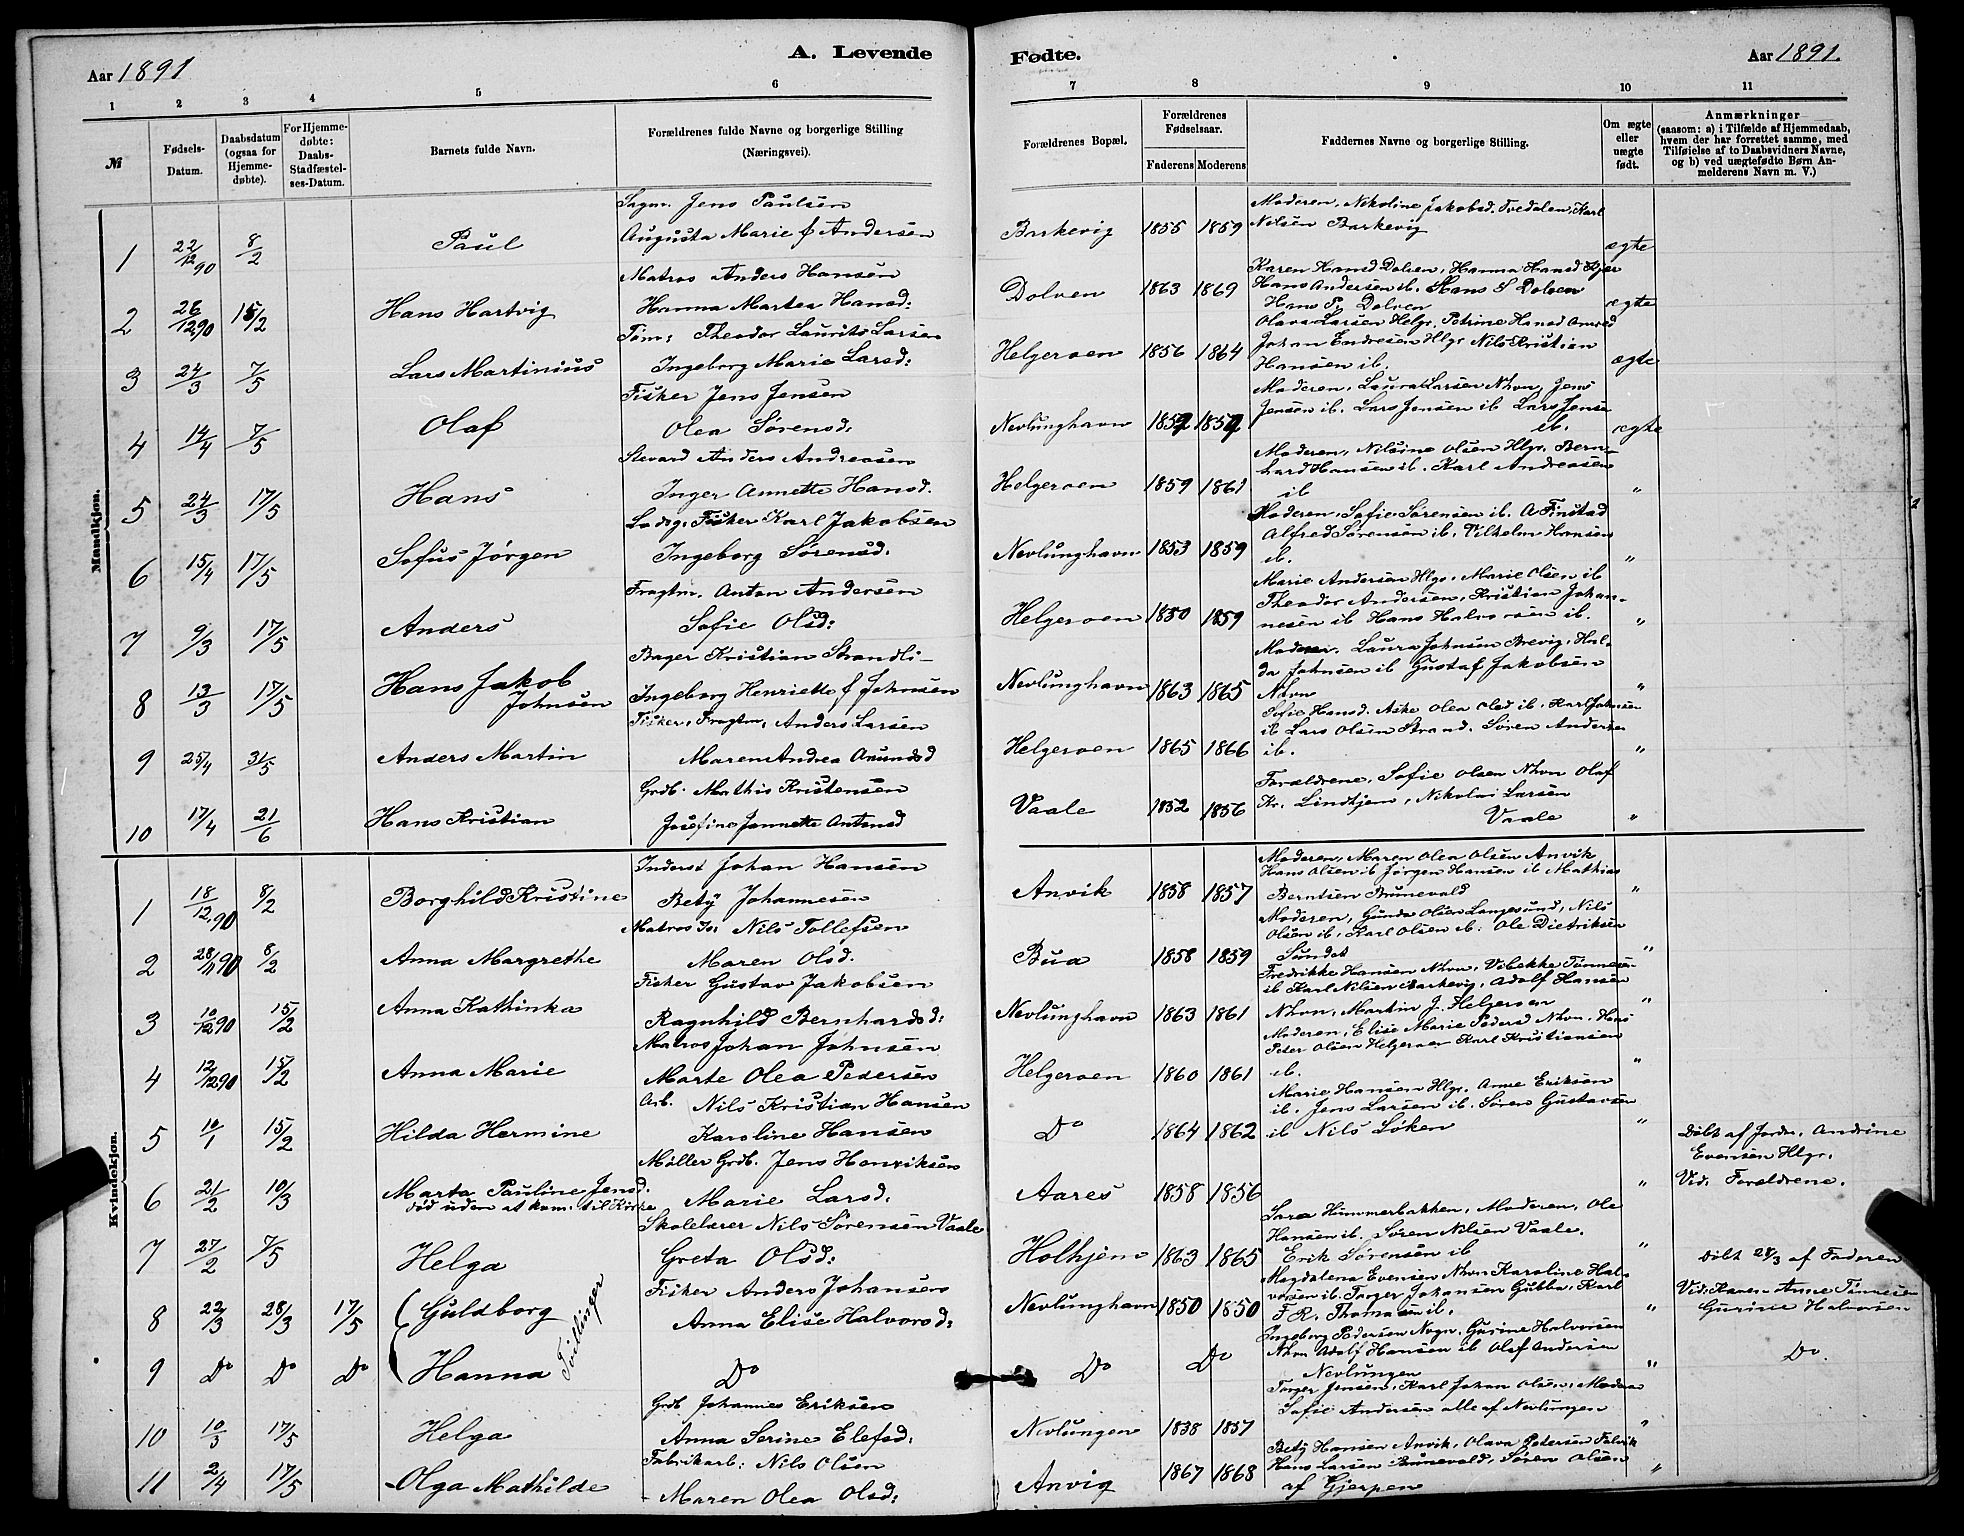 Aar 1891
A. Levende
Fødte.
Aar 1891.
1 2 3 4 5 6
7 8 9 10 11
№
Fødsels-Datum.
Daabsdatum (ogsaa for Hjemme-døbte).
For Hjemme-døbte: Daabs-Stadfæstel-ses-Datum.
Barnets fulde Navn.
Forældrenes fulde Navne og borgerlige Stilling (Næringsvei).
Forældrenes Bopæl.
Forældrenes Fødselsaar.
Faderens Moderens
Faddernes Navne og borgerlige Stilling.
Om ægte eller uægte født.
Anmærkninger
(saasom: a) i Tilfælde af Hjemmedaab, hvem der har forrettet samme, med Tilføielse af to Daabsvidners Navne, og b) ved uægtefødte Børn An-melderens Navn m. V.)
Mandkjøn.
Sagm. Jens Paulsen
1 22/12 90 8/2 Paul Augusta Marie f Andersen
Barkevig 1855 1859
Moderen, Nikoline Jakobsd. Tvedalen, Karl
Nilsen Barkevig
ægte
Matros Anders Hansen
2 26/12 90 15/2 Hans Hartvig Hanna Martea Hansd:
Dolven 1863 1869
Karen Hansd Dolven, Hanna Hansd
Hans Andersen ib. Hans S Dolven
Hans P. Dolven
ægte
Tøm: Theodor Laurits Larsen
3 24/3 7/5 Lars Martinius Ingeborg Marie Larsd:
Helgeroen 1856 1864
Olava Larsen Helgr. Petrine Hansd
Johan Endresen Hlgr Nils Kristian
Hansen ib.
ægte
Fisker Jens Jensen
4 14/4 7/5 Olaf Olea Sørensd:
Nevlunghavn 1859 1859
Moderen, Laura Larsen Nhvn, Jens
Jensen ib. Lars Jensen ib Lars Jense
ib.
ægte
Stevard Anders Andreasen
5 24/3 17/5 Hans Inger Annette Hansd.
Helgeroen 1859 1861
Moderen, Nilsine Olsen Hlgr. Bern-
hard Hansen ib. Karl Andreasen
ib
"
Lods. Fisker Karl Jakobsen
6 15/4 17/5 Sofus Jørgen Ingeborg Sørensd.
Nevlunghavn 1853 1859
Moderen, Sofie Sørensen ib. A Finstad
Alfred Sørensen ib. Vilhelm Hansen
ib.
"
Fragtm. Anton Andersen
7 9/3 17/5 Anders Sofie Olsd:
Helgeroen 1850 1859
Marie Andersen Hlgr. Marie Olsen ib
Theodor Andersen, Kristian Johan-
nesen ib Hans Halvorsen ib.
"
Bager Kristian Strandli
8 13/3 17/5 Hans Jakob Johnsen Ingeborg Henriette f Johnsen
Nevlunghavn 1863 1865
Moderen. Laura Johnsen Brevig, Hul-
da Johnsen ib Gustaf Jakobsen
Nhvn
"
Fisker, Fragtm, Anders Larsen
9 25/4 31/5 Anders Martin Maren Andrea Amundsd
Helgeroen 1865 1866
Sofie Hansd. Aske Olea Olsd ib. Karl Johnsen
ib Lars Olsen Strand. Søren Andersen
ib.
"
Grdb. Mathis Kristensen
10 17/4 21/6 Hans Kristian Josefine Jannette Antonsd
Vaale 1852 1856
Forældrene, Sofie Olsen Nhvn Olaf
Kr. Lindtjern, Nikolai Larsen
Vaale
"
Kvindekjøn.
Inderst Johan Hansen
1 18/12 90 8/2 Borghild Kristine Bety Johannesen
Anvik 1858 1857
Moderen, Maren Olea Olsen Anvik
Hans Olsen ib Jørgen Hansen ib Mathias
Berntsen Brunevald
"
Matros Nils Tollefsen
2 28/11 90 8/2 Anna Margrethe Maren Olsd.
Bua 1858 1859
Moderen, Gunda Olsen Langesund, Nils
Olsen ib. Karl Olsen ib. Ole Diedriksen
Sundet
"
Fisker Gustav Jakobsen
3 10/12 90 15/2 Anna Kathinka Ragnhild Bernhardsd:
Nevlunghavn 1863 1861
Fredrikke Hansen Nhvn, Vibekke Tønnesen
ib Karl Nilsen Barkevig, Adolf Hansen
Nhvn, Martin J. Helgeroen
"
Matros Johan Johnsen
4 12/12 90 15/2 Anna Marie Marte Olea Pedersen
Helgeroen 1860 1861
Moderen, Elise Marie Pedersd Nhvn, Hans
Peter Olsen Helgeroen Karl Kristiansen
ib.
"
Arb. Nils Kristian Hansen
5 10/1 15/2 Hilda Hermine Karoline Hansen
Do 1864 1862
Marie Hansen Hlgr. Anne Eriksen
ib. Jens Larsen ib. Søren Gustavsen
ib Nils Løken
"
Møller Grdb. Jens Henriksen
6 21/2 10/3 Marta Pauline Jensd. død uden at kom: til Kirke Marie Larsd.
Aares 1858 1856
"
Døbt af Jordm. Andrine
Evensen Hlgr.
Vid: Forældrene.
Skolelærer Nils Sørensen Vaale
7 27/2 7/5 Helga Greta Olsd:
Holtjem 1863 1865
Sara Hummerbakken, Moderen, Ole
Hansen ib. Søren Nilsen Vaale.
Erik Sørensen ib
"
Fisker Anders Johansen
8 22/3 28/3 17/5 Guldborg Anna Elise Halvorsd:
Tvillinger
Nevlunghavn 1850 1850
Magdalena Evensen Nhvn Karoline Hal-
vorsen ib. Torger Johansen Gubba, Karl
F. R. Thomasen ib.
"
Døbt 28/3 af Faderen
Vid: Karen Anne Tønnesen
Gurine Halvorsen
9 Do Do Do Hanna Do
Do Do
Ingeborg Pedersen Nvgn, Gurine Halvorsen
Nhvn Adolf Hansen ib Olaf Andersen
Nevlungen
"
Do.
Grdb Johannes Eriksen
10 10/3 17/5 Helga Anna Serine Elefsd:
Nevlungen 1838 1857
Torger Jensen, Karl Johan Olsen,
Sofie Andersen alle af Nevlungen
"
Fabrikarb: Nils Olsen
11 2/4 17/5 Olga Mathilde Maren Olea Olsd:
Anvig 1867 1868
Bety Hansen Anvik, Olava Petersen
Hans Larsen Brunevald, Søren Olsen
af Gjerpen
"